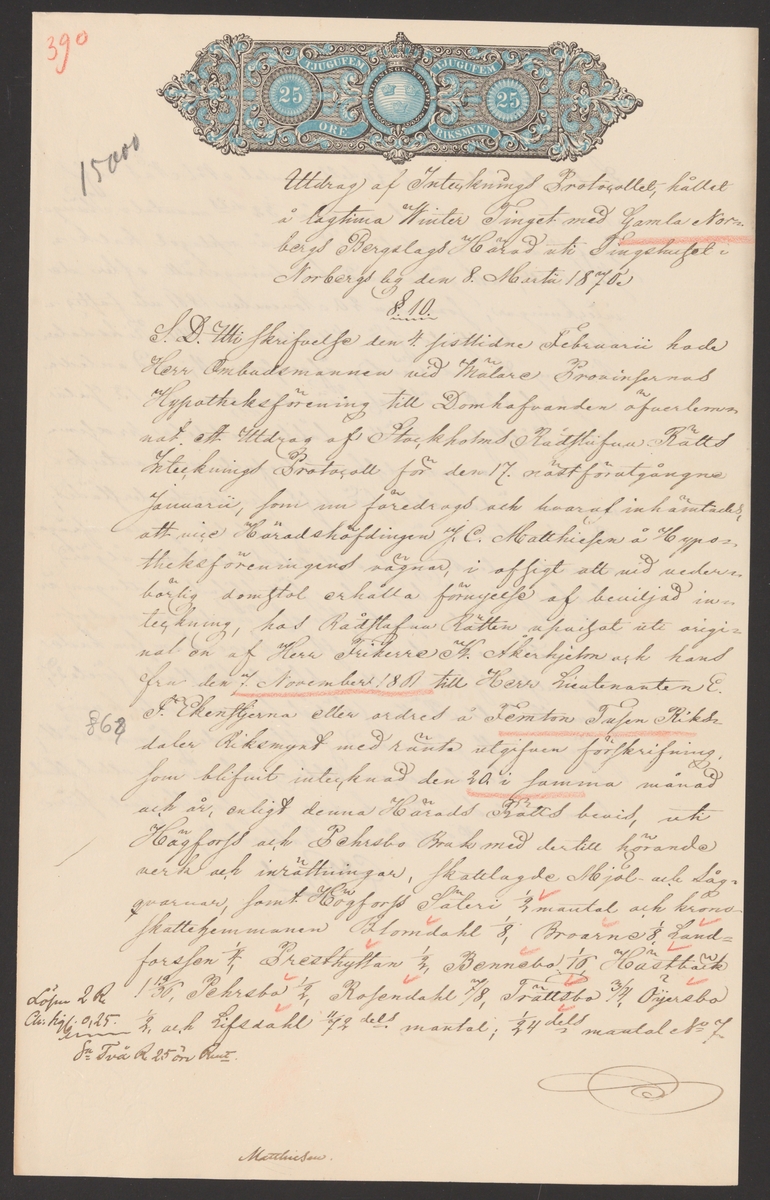 390
TJUGUFEM TJUGUFEM
25 25
ÖRE RIKSMYNT
15000
Utdrag af Intecknings Protocollet, hållet
å lagtima Winter Tinget med Gamla Nor-
bergs Bergslags Härad uti Tingshuset i
Norbergs by den 8. Martii 1870.
§. 10.
S. D. Uti skrifvelse den 4 sisttidne Februarii hade
Herr Ombudsmannen vid Mälare Provinsernas
Hypotheksförening till Domhafvanden öfverlem-
nat ett Utdrag af Stockholms Rådstufvu Rätts
Intecknings Protocoll för den 17. nästförutgångne
Januarii, som nu föredrogs och hvaraf inhämtades,
att vice Häradshöfdingen J. C. Matthiesen å Hypo-
theksföreningens vägnar, i afsigt att vid veder-
börlig domstol erhålla förnyelse af beviljad in-
teckning, hos Rådstufvu Rätten uppvisat uti origi-
nal en af Herr Friherre K. Åkerhjelm och hans
fru den 7 November 1861 till Herr Lieutenanten E.
862 F. Ekenstjerna eller ordres å Femton Tusen Riks-
daler Riksmynt med ränta utgifven förskrifning,
som blifvit intecknad den 20 i samma månad
och år, enligt denna Härads Rätts bevis, uti
Högforss och Pehrsbo Bruk med dertill hörande
verk och inrättningar, skattlagde Mjöl- och Såg-
qvarnar, samt Högforss Säteri 1/2 mantal och krono-
skattehemmanen Blomdahl 1/8, Broarne 1/8, Land-
forssen 1/4, Presthyttan 1/2, Bennebo 1/16, Hästbäck
Pehrsbo 1/2, Rosendahl 7/8, Trättsbo 3/4, Öijersbo
1/2, och Lifsdahl 11/72 dels mantal; 1/24 dels mantal No 7
Lösen 2 R
0,25.
Två R 25 öre Rmt.
Matthiesen.